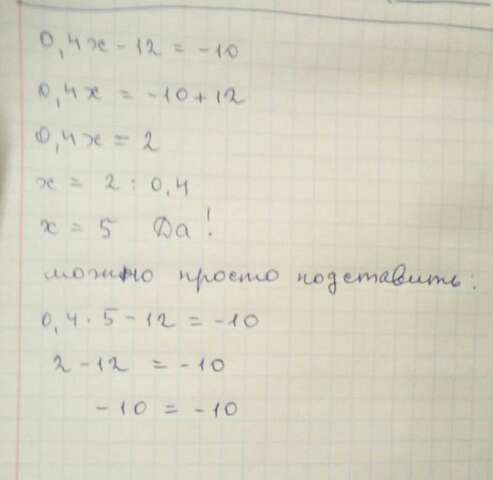 0,4x - 12 = -10
0,4x = -10 + 12
0,4x = 2
x = 2 : 0,4
x = 5 Да!
можно просто подставить:
0,4 · 5 - 12 = -10
2 - 12 = -10
-10 = -10